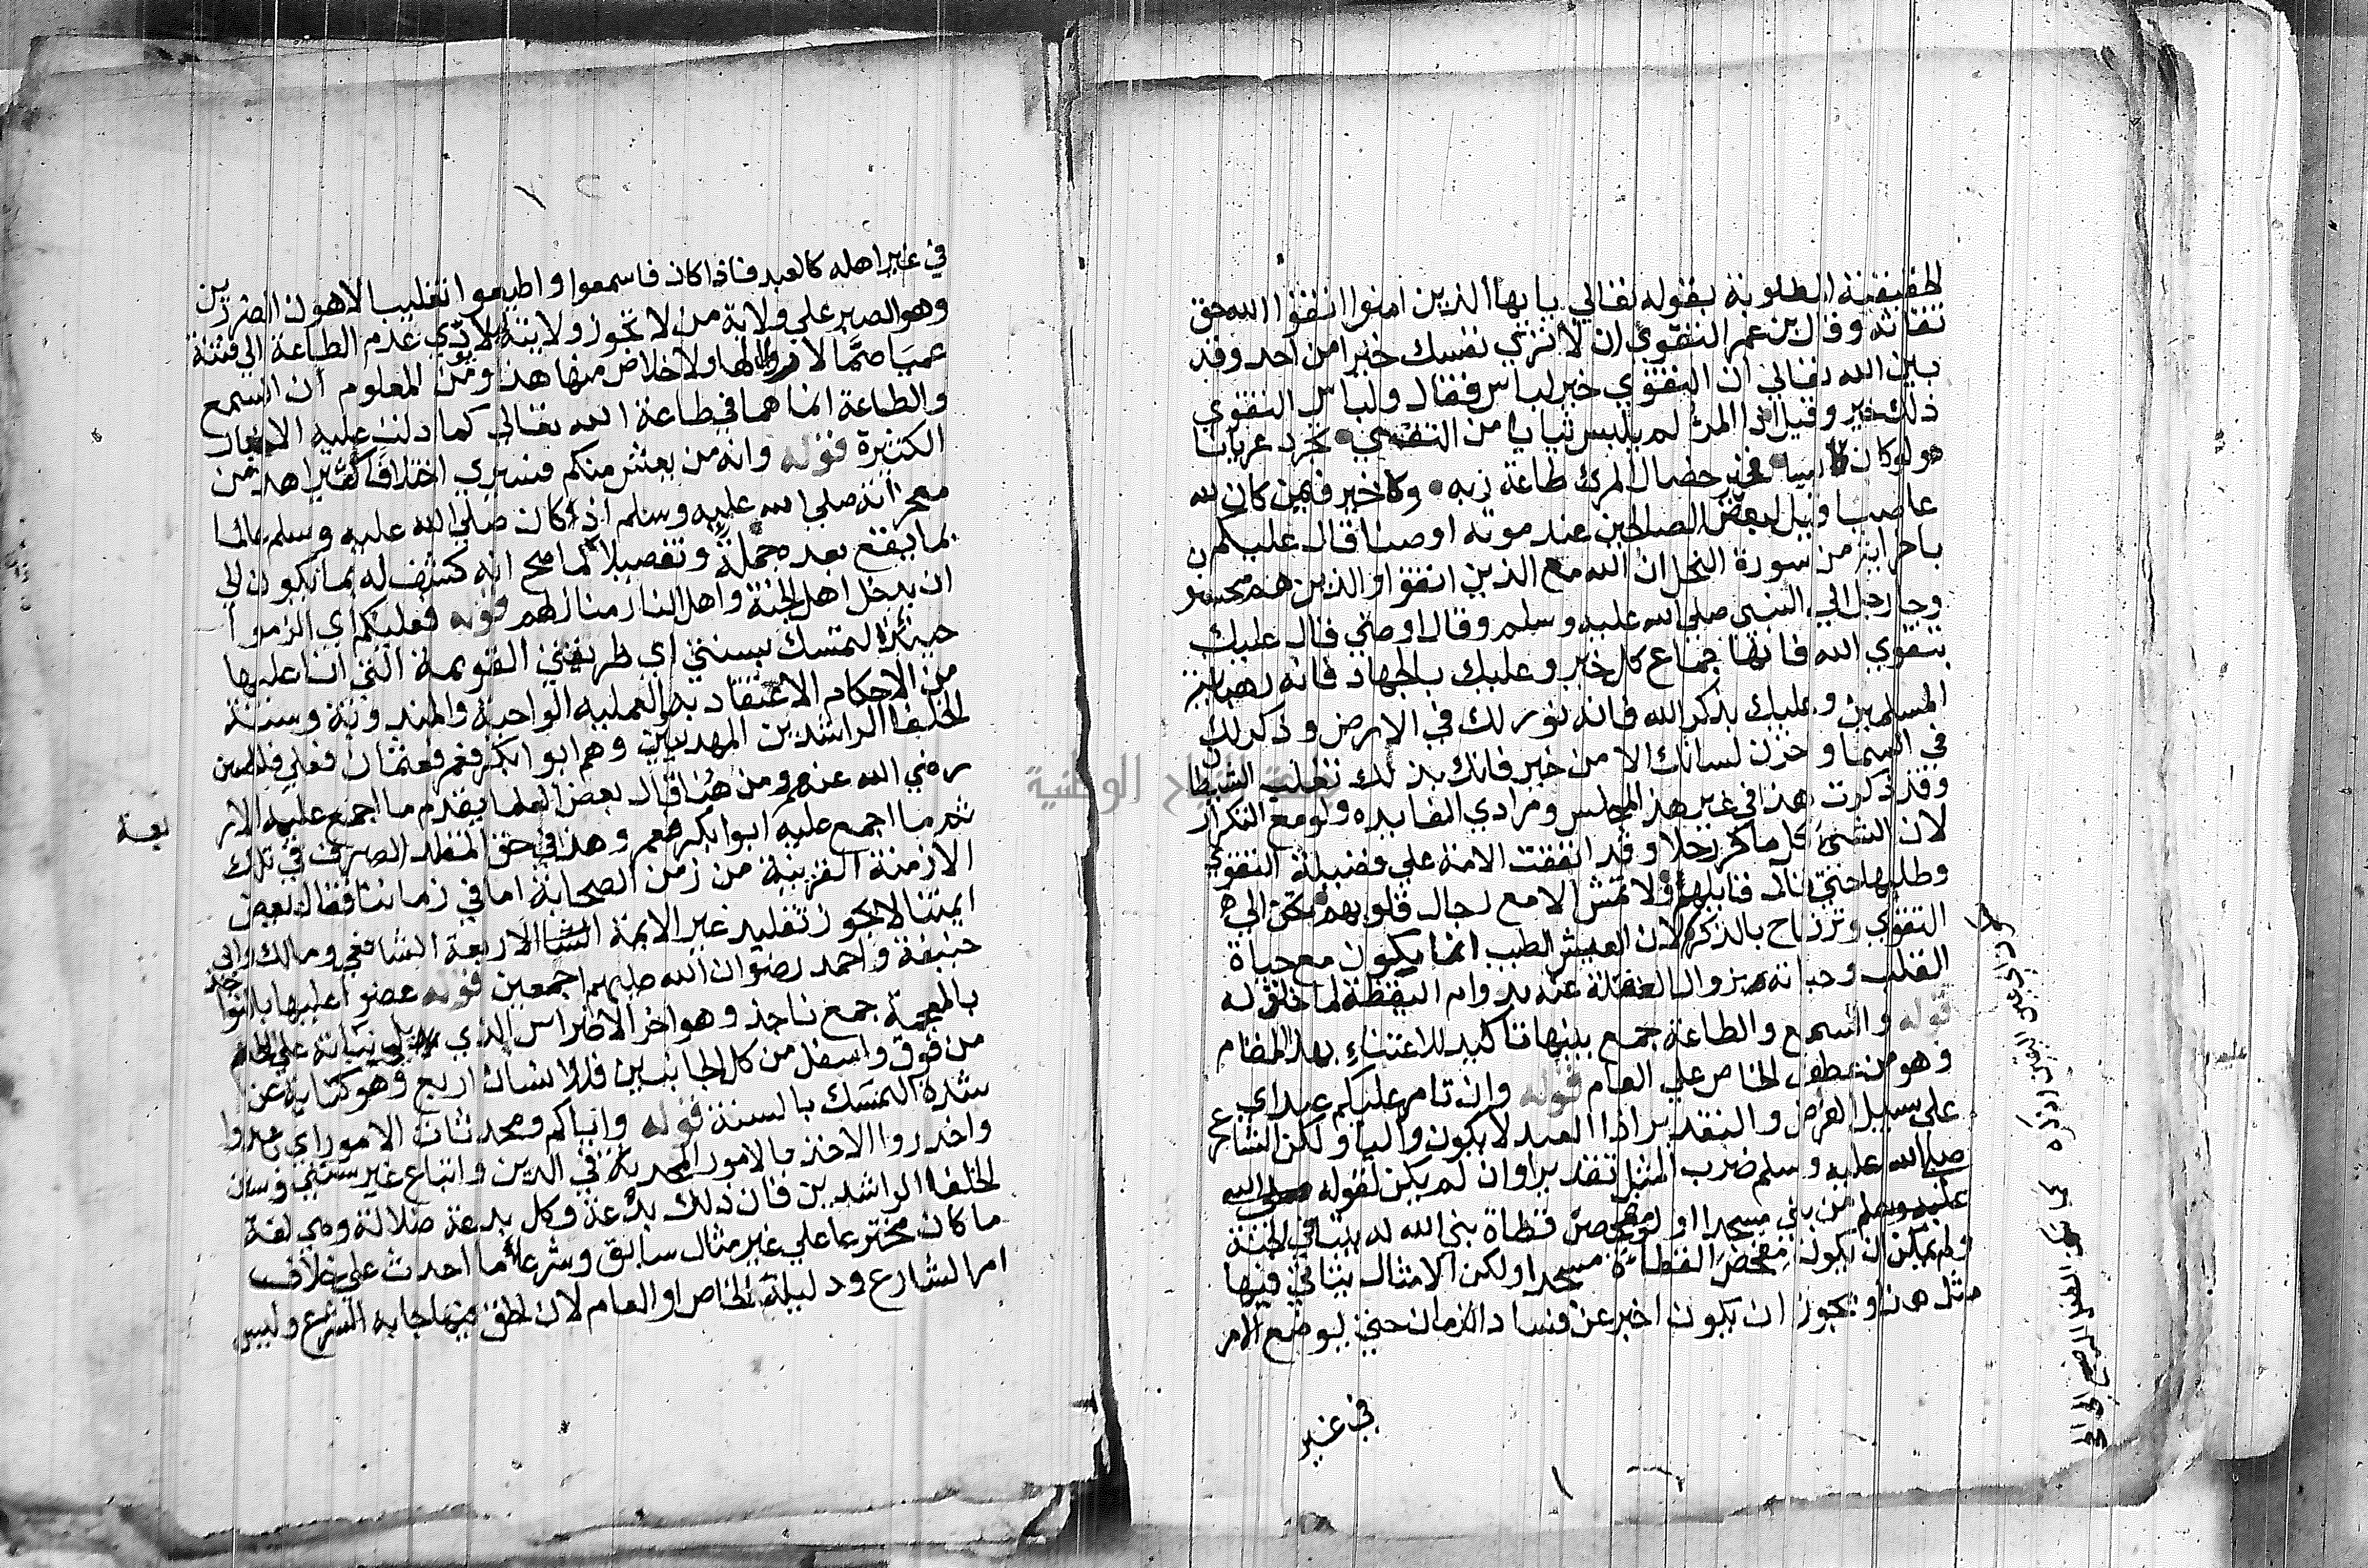 الحقيقية المطلوبة بقوله تعالي يا يها الذين امنوا اتقوا الله حق
تقاته وقال بن عمر التقوي ان لا تري نفسك خيرا من احد وقد
بين الله تعالي ان التقوي خير لباس فقال ولباس التقوي
ذلك خير وقيل اذا المرء لم يلبس ثيابا من التقي تجرد عريانا
ولو كان كاسيا فخير خصال المرء طاعة ربه ولا خير فيمن كان لله
عاصيا وقيل لبعض الصالحين عند موته اوصنا قال عليكم
باخر اية من سورة النحل ان الله مع الذين اتقوا والذين هم محسنون
وجا رجل الي النبي صلي الله عليه وسلم وقال اوصني قال عليك
بتقوي الله فانها جماع كل خير وعليك بالجهاد فانه رهبانية
المسلمين وعليك بذكر الله فانه نور لك في الارض وذكر لك
في السما وخزن لسانك الا من خير فانك بذلك تغلب الشيطان
وقد ذكرت هذا في غير هذا المجلس ومرادي الفايده ولو مع التكرار
لان الشيء كل ما كرر حلا وقد اتفقت الامة علي فضيلة التقوي
وطلبها حتي قال قايلهم فلا تمش الا مع رجال قلوبهم تحن الي
التقوي وترتاح بالذكر لان العيش الطيب انما يكون مع حياة
القلب وحياته بزوال الغفلة عنه بدوام اليقظة لما خلق له
قوله والسمع والطاعة جمع بينهما تاكيدا للاعتناء بهذا المقام
وهو من عطف الخاص علي العام قوله وان تامر عليكم عبد اي
علي سبيل الفرض والتقدير اذ العبد لا يكون واليا ولكن الشارع
صلي الله عليه وسلم ضرب المثل تقديرا وان لم يكن لقوله صلي الله
عليه وسلم من بني مسجدا ولو كمفحص قطاة بني الله له بيتا في الجنة
ولم يمكن ان يكون مفحص القطاة مسجدا ولكن الامثال يتاتي فيها
مثل هذا ويجوز ان يكون اخبر عن فساد الزمان حتي يوضع الامر
في غير
في غير اهله كالعبد فاذا كان فاسمعوا واطيعوا تغليبا لاهون الضررين
وهو الصبر علي ولاية من لا تجوز ولايته ليلا يودي عدم الطاعة الي فتنة
عميا صما لا دوا لها ولا خلاص منها هذا ومن المعلوم ان السمع
والطاعة انما هما في طاعة الله تعالي كما دلت عليه الاحاديث
الكثيرة قوله وانه من يعش منكم فسيري اختلافا كثيرا هذا من
معجزاته صلي الله عليه وسلم اذ كان صلي الله عليه وسلم عالما
بما يقع بعده جملة وتفصيلا كما صح انه كشف له بما يكون الي
ان يدخل اهل الجنة واهل النار منازلهم قوله فعليكم اي الزموا
حينئذ التمسك بسنتي اي طريقتي القويمة التي انا عليها
من الاحكام الاعتقاديه والعمليه الواجبة والمندوبة وسنة
الخلفا الراشدين المهديين وهم ابوا بكر فعمر فعثمان فعلي فالحسن
رضي الله عنهم ومن هنا قال بعض العلما يقدم ما اجمع عليه الار
بعة
ثم ما اجمع عليه ابوا بكر فعمر وهذا في حق المقلد الصرف في تلك
الازمنة القريبة من زمن الصحابة اما في زماننا فقال بعض
ايمتنا لا يجوز تقليد غير الايمة الاربعة الشافعي ومالك وابي
حنيفة واحمد رضوان الله عليهم اجمعين قوله عضوا عليها بالنواجذ
بالمعجمة جمع ناجذ وهو اخر الاضراس الذي يدل نباته علي الحلم
من فوق واسفل من كل الجانبين فللانسان اربع وهو كناية عن
شدة التمسك بالسنة قوله واياكم ومحدثات الامور اي باعدوا
واحذروا الاخذ بالامور المحدثة في الدين واتباع غير سنتي وسنن
الخلفا الراشدين فان ذلك بدعة وكل بدعة ضلالة وهي لغة
ما كان مخترعا علي غير مثال سابق وشرعا ما احدث علي خلاف
امر الشارع ودليله الخاص او العام لان الحق فيما جا به الشرع وليس